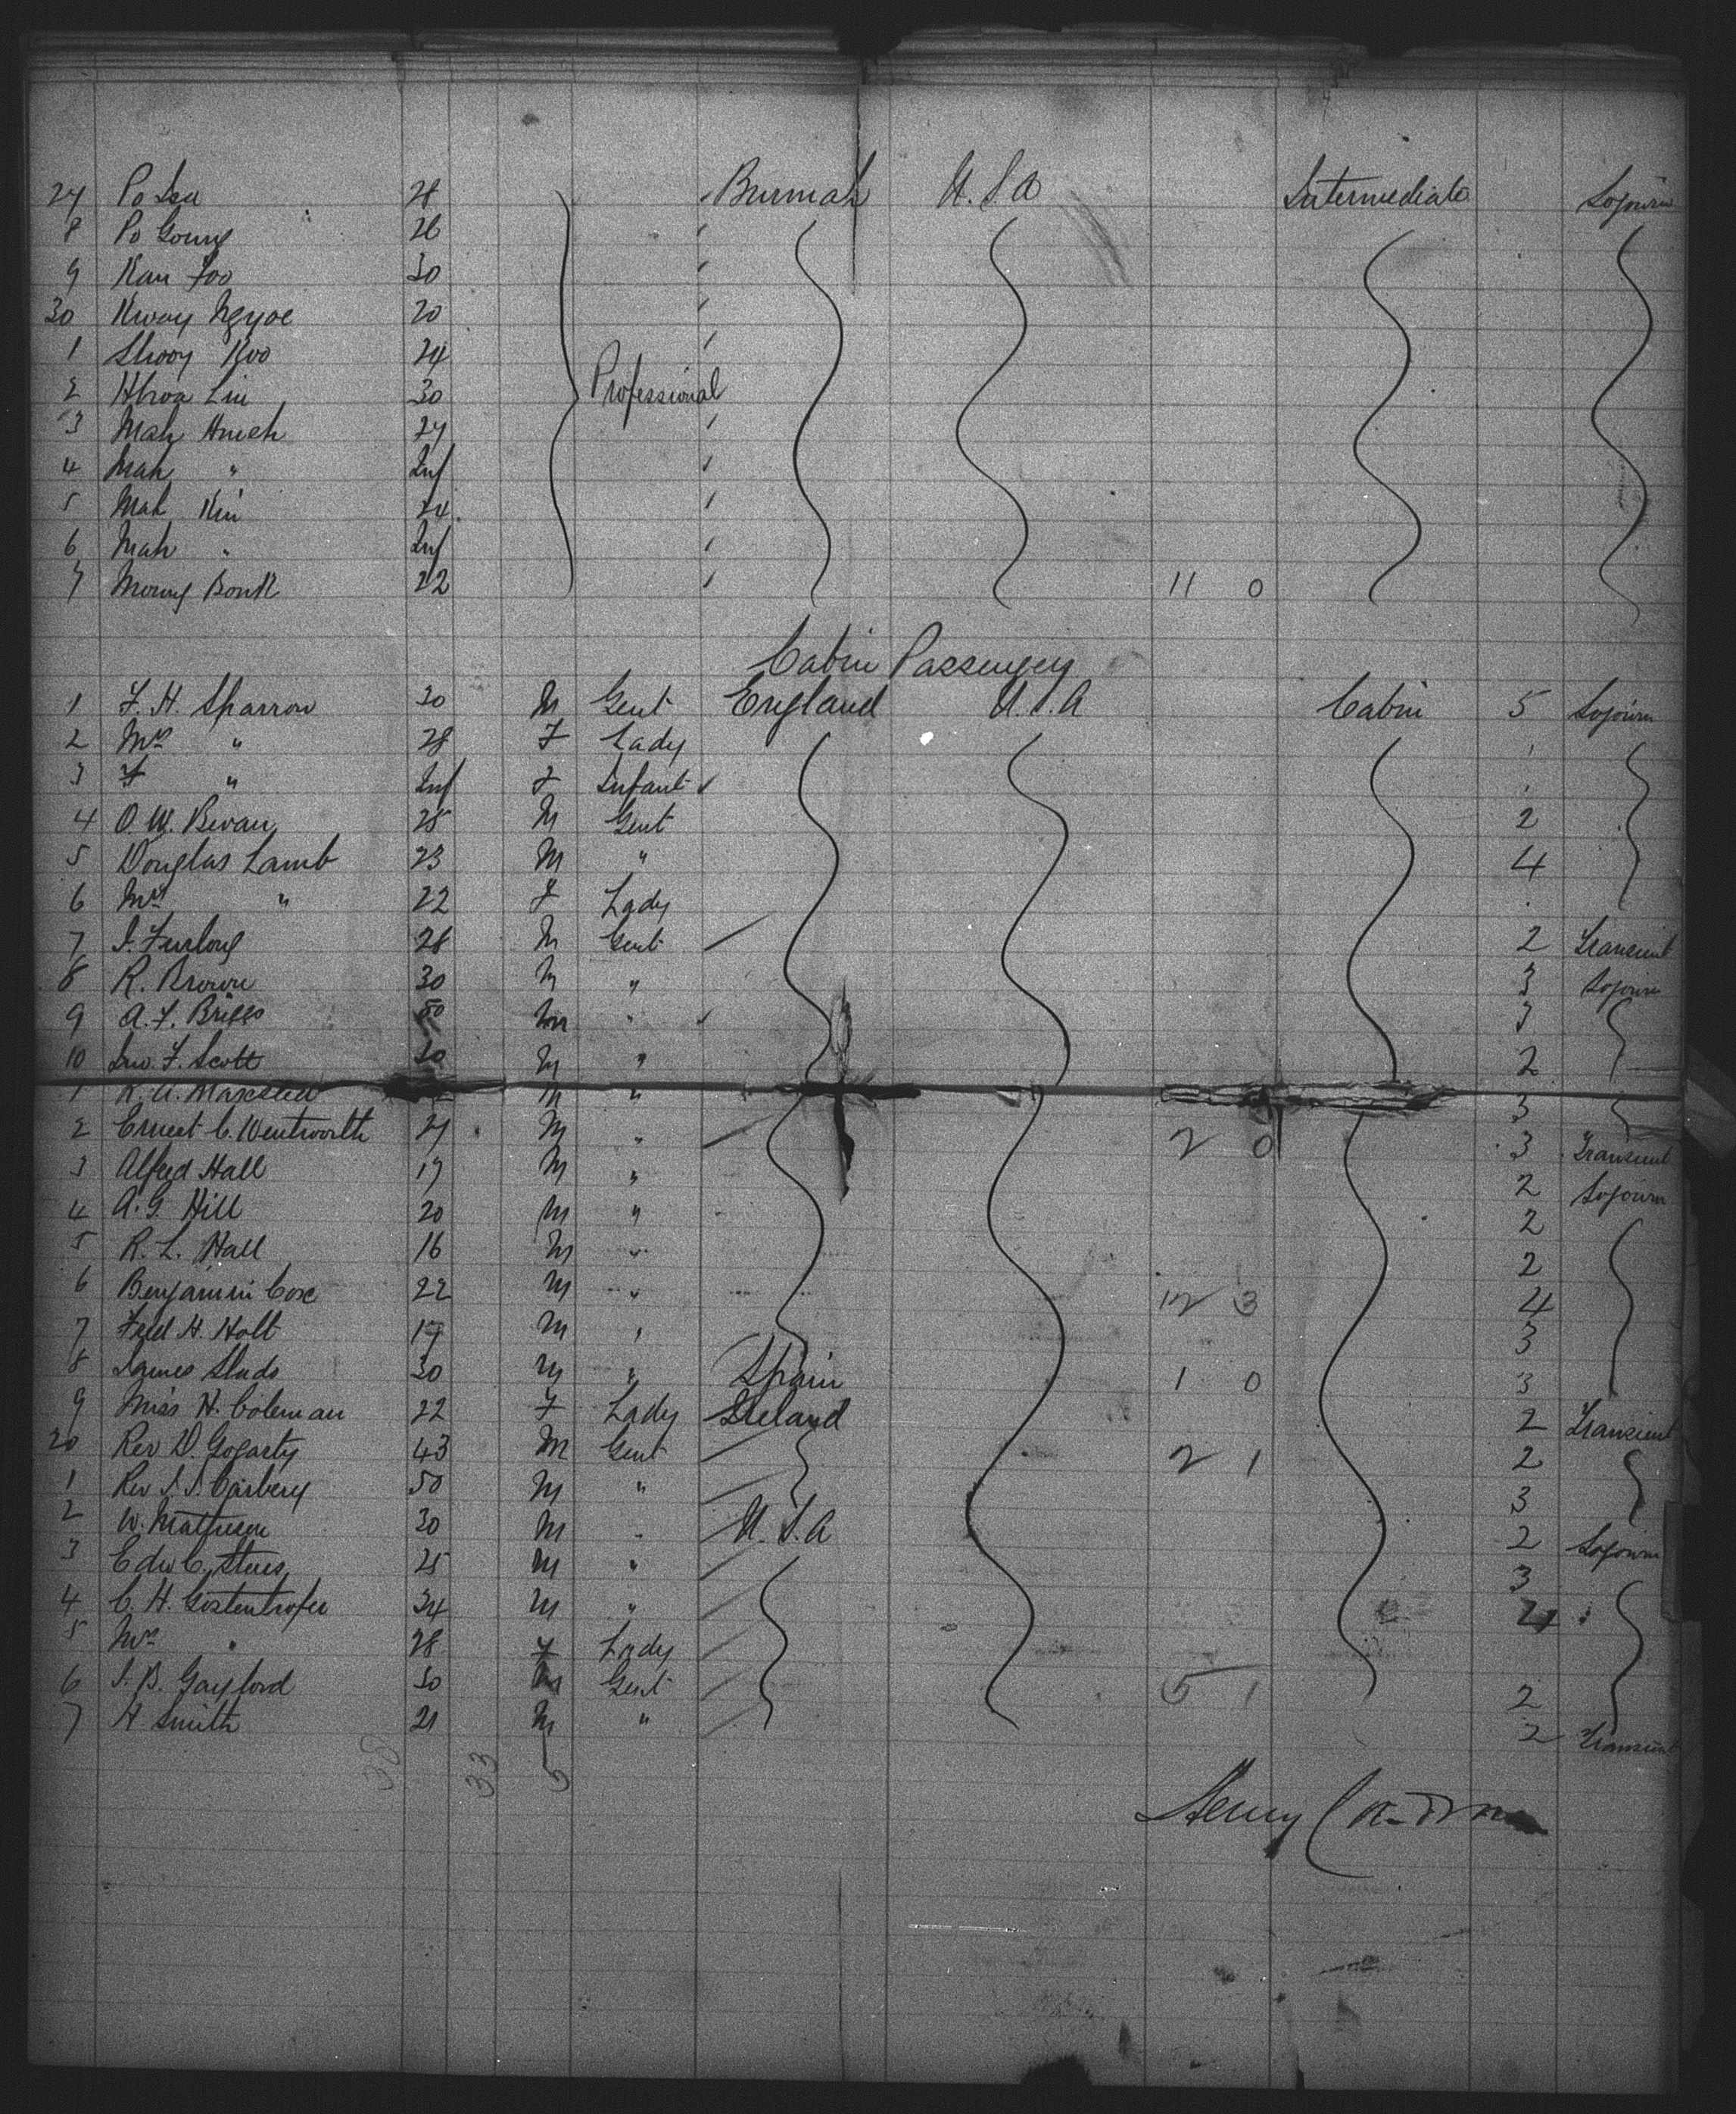 27 Po Sea 28 Burmah U.S.A Intermediate Sojourn
8 Po Goung 26
9 Kan Foo 30
30 Kway Ngyoe 20
1 Shooy Koo 24
2 Hhoa Lin 30 Professional
3 Mah Hmeh 27
4 Mah " Inf
5 Mah Kin 24
6 Mah " Inf
7 Moung Bonk 22 11 0
Cabin Passengers
1 F. H. Sparrow 30 M Gent England U.S.A Cabin 5 Sojourn
2 Mrs " 28 F Lady
3 F " Inf F Infant
4 O. W. Bevan 25 M Gent 2
5 Douglas Lamb 23 M " 4
6 Mrs " 22 F Lady
7 J. Furlong 28 M Gent 2 Transient
8 R. Brown 30 M " 3 Sojourn
9 A. F. Briggs 50 M " 3
10 Jno. F. Scott 30 M " 2
1 R. A. M " 3
2 Ernest C. Wentworth 21 M " 2 0 3 Transient
3 Alfred Hall 17 M " 2 Sojourn
4 A. G. Hill 20 M " 2
5 R. L. Hall 16 M " 2
6 Benjamin Coxe 22 M " 12 3 4
7 Fred H. Holt 17 M " 3
8 James Slads 30 M " Spain 1 0 3
9 Miss H. Coleman 22 F Lady Ireland 2 Transient
20 Rev D. Gogarty 43 M Gent 2 1 2
1 Rev J. J. Carbery 50 M " 3
2 W. Matheson 30 M " U.S.A 2 Sojourn
3 Edw C. Stees 25 M " 3
4 C. H. Gostenhofer 34 M " 4
5 Mrs " 28 F Lady
6 J. B. Gaylord 30 M Gent 5 1 2
7 H Smith 21 M " 2 Transient
38 33 5
Henry